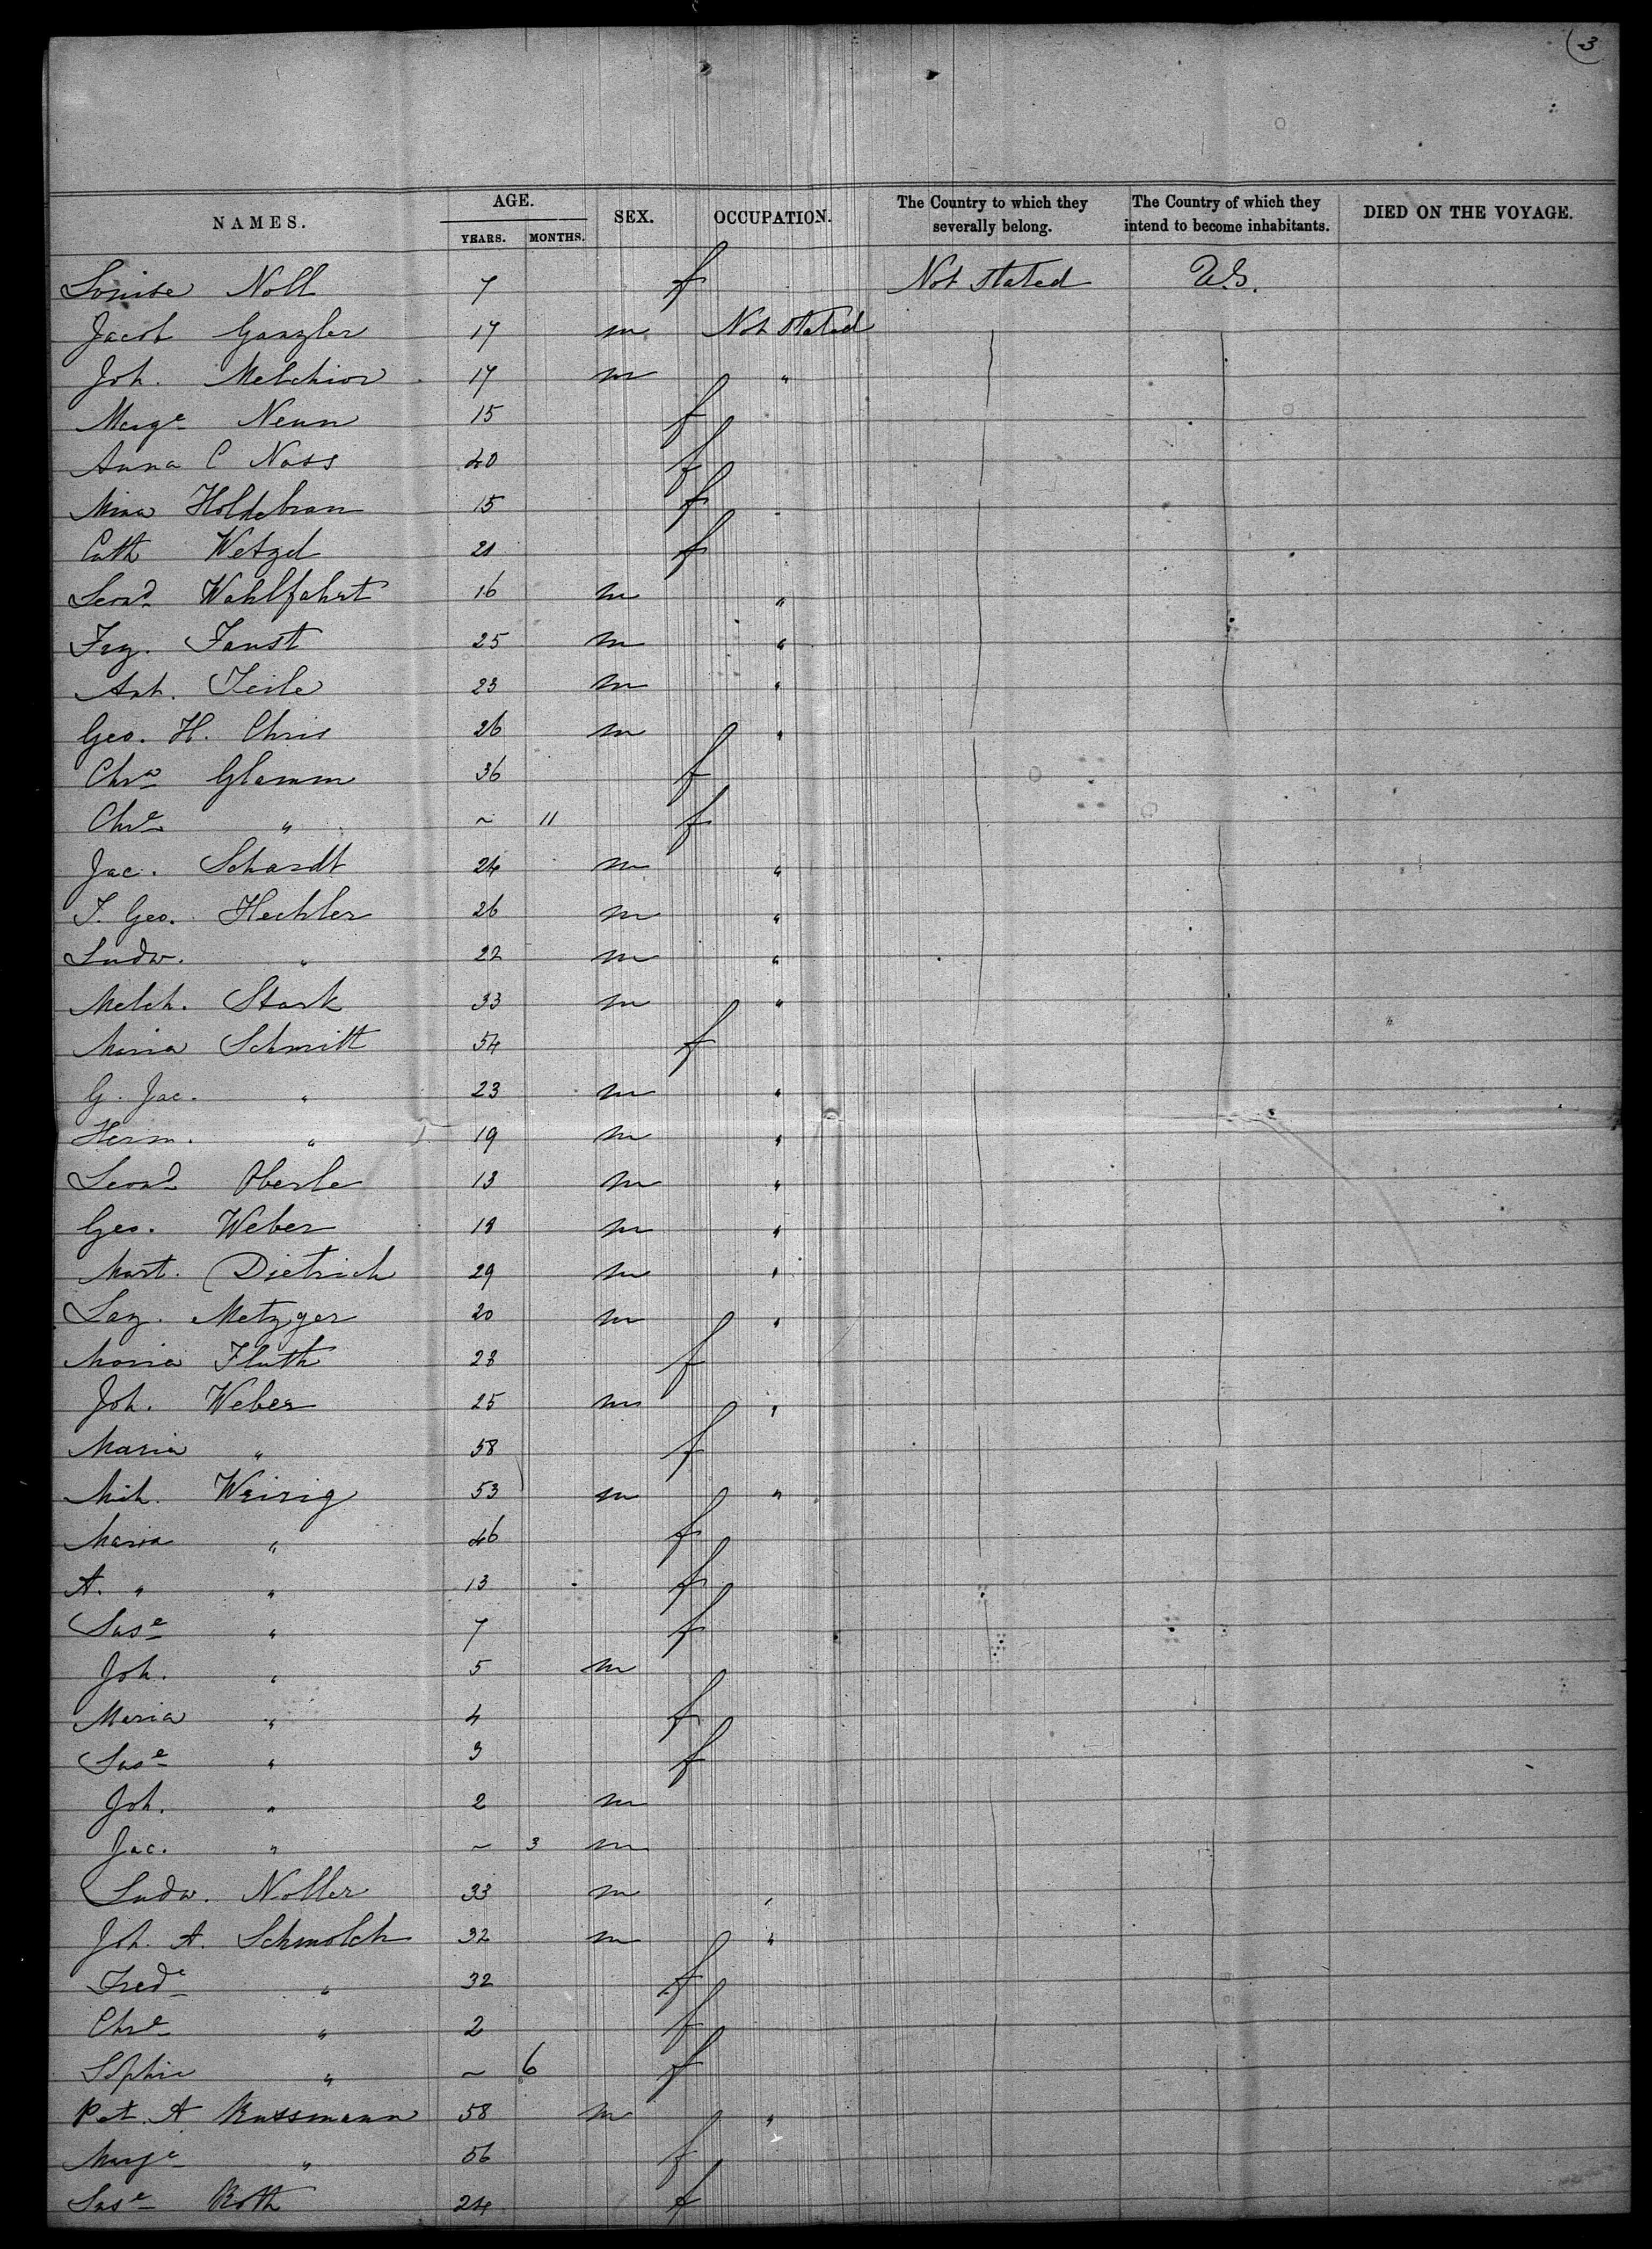 3
NAMES. AGE. YEARS. MONTHS. SEX. OCCUPATION. The Country to which they severally belong. The Country of which they intend to become inhabitants. DIED ON THE VOYAGE.
Louise Noll 7 f Not stated U.S.
Jacob Ganzler 17 m Not stated
Joh. Melchior 17 m "
Marge Nenn 15 f
Anna C Nass 40 f
Mina Holdebran 15 f
Cath Wetzel 21 f
Leond Wahlfahrt 16 m "
Frz. Faust 25 m "
Ant. Teile 23 m "
Geo. H. Chris 26 m "
Chra Glamm 36 f
Chre " ~ 11 f
Jac. Schardt 24 m "
J. Geo. Hechler 26 m "
Ludw. " 22 m "
Melch. Stark 33 m "
Maria Schmitt 54 f
G. Jac. " 23 m "
Herm. " 19 m "
Leond Oberle 13 m "
Geo. Weber 18 m "
Mart. Dietrich 29 m "
Laz. Metzger 20 m "
Maria Fluth 28 f
Joh. Weber 25 m "
Maria " 58 f
Mich. Weirig 53 m "
Maria " 46 f
A. " " 13 f
Suse " 7 f
Joh. " 5 m
Maria " 4 f
Suse " 3 f
Joh. " 2 m
Jac. " ~ 3 m
Ludw. Noller 33 m "
Joh. A. Schmolch 32 m "
Frede " 32 f
Chre " 2 f
Sophie " ~ 6 f
Pet. A Russmann 58 m "
Marge " 56 f
Suse Roth 24 f